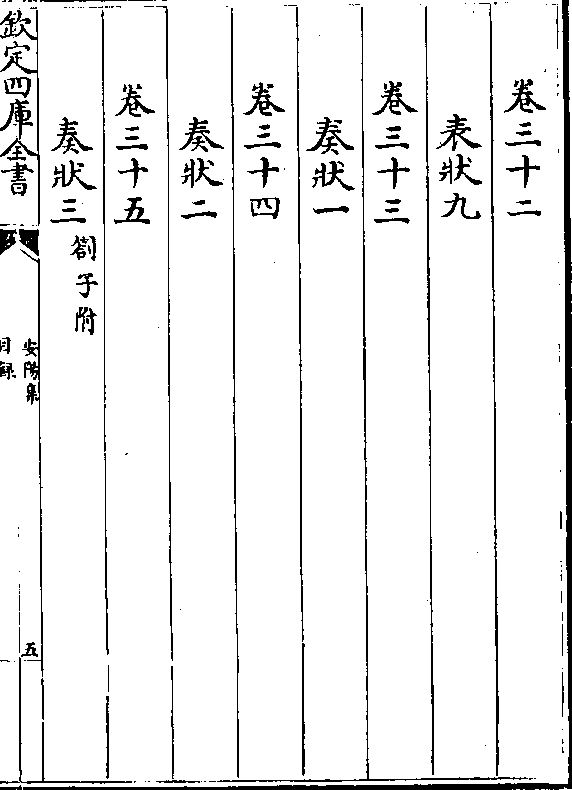 卷三十二
表狀九
卷三十三
奏狀一
卷三十四
奏狀二
卷三十五
奏狀三 劄子附
欽定四庫全書
安陽集
目録
五